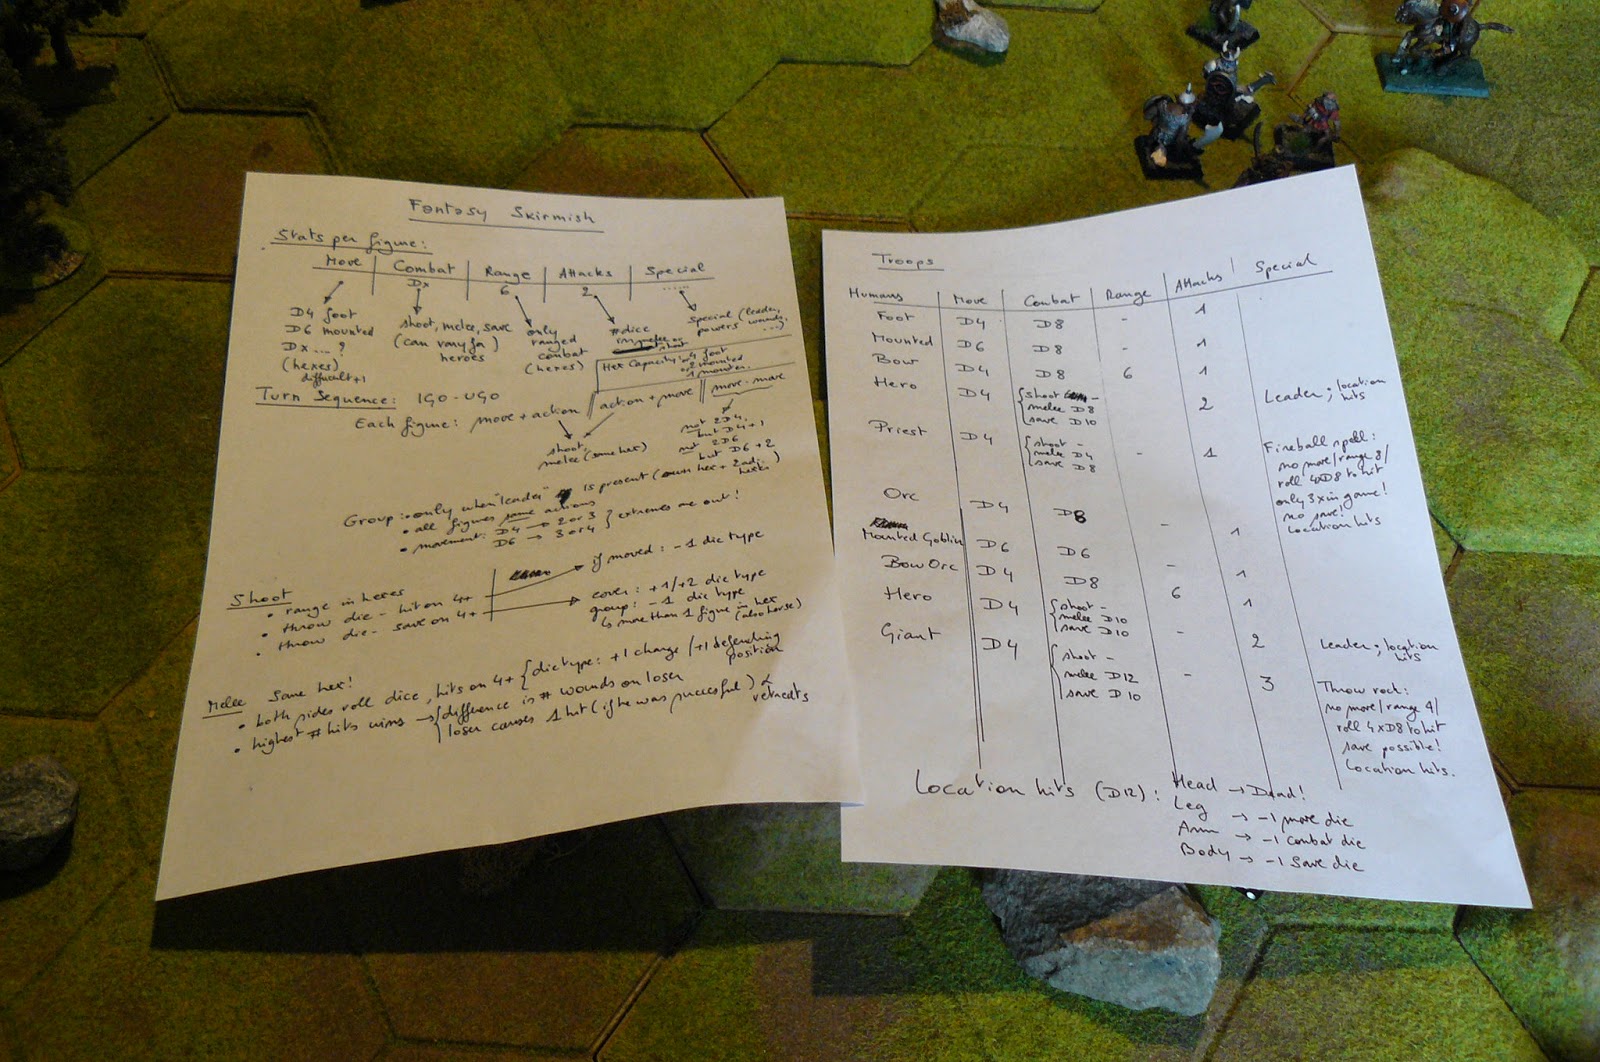 Fantasy Skirmish
Stats per figure:
Move | Combat | Range | Attacks | Special
Dx 6 2 ......
D4 foot
D6 mounted
Dx ... ?
(hexes)
difficult +1
shoot, melee, save
(can vary for
heroes
only
ranged
combat
(hexes)
# dice
shoot
special (leader,
powers, wounds,
...)
Hex Capacity: 4 foot
2 mounted
1 monster.
Turn Sequence: IGO-UGO
Each figure: move + action || action + move || move-move
shoot,
melee (same hex)
not 2D4.
but D4+1
not 2D6
but D6+2
Group: • only when "leader" is present (own hex + 2 adj. hexes)
• all figures same actions
• movement: D4 → 2 or 3
D6 → 3 or 4 } extremes are out!
Shoot
• range in hexes
• throw die - hit on 4+
• throw die - save on 4+
if moved: -1 die type
cover: +1/+2 die type
group: -1 die type
↳ more than 1 figure in hex
(also horse)
Melee Same hex!
• both sides roll dice, hits on 4+ { die type: +1 charge / +1 defending
position
• highest # hits wins → { difference is # wounds on loser
loser causes 1 hit (if he was successful) & retreats
Troops
Humans | Move | Combat | Range | Attacks | Special
Foot D4 D8 - 1
Mounted D6 D8 - 1
Bow D4 D8 6 1
Hero D4 { shoot -
melee D8
save D10
2 Leader; location
hits
Priest D4 { shoot -
melee D4
save D8
- 1 Fireball spell:
no move/range 8/
roll 4xD8 to hit
only 3x in game!
no save!
Location hits
Orc D4 D8 - 1
Mounted Goblin D6 D6 - 1
Bow Orc D4 D8 6 1
Hero D4 { shoot -
melee D10
save D10
- 2 Leader; location
hits
Giant D4 { shoot -
melee D12
save D10
- 3 Throw rock:
no move/range 4/
roll 4xD8 to hit
save possible!
Location hits.
Location hits (D12): Head → Dead!
Leg → -1 move die
Arm → -1 combat die
Body → -1 save die